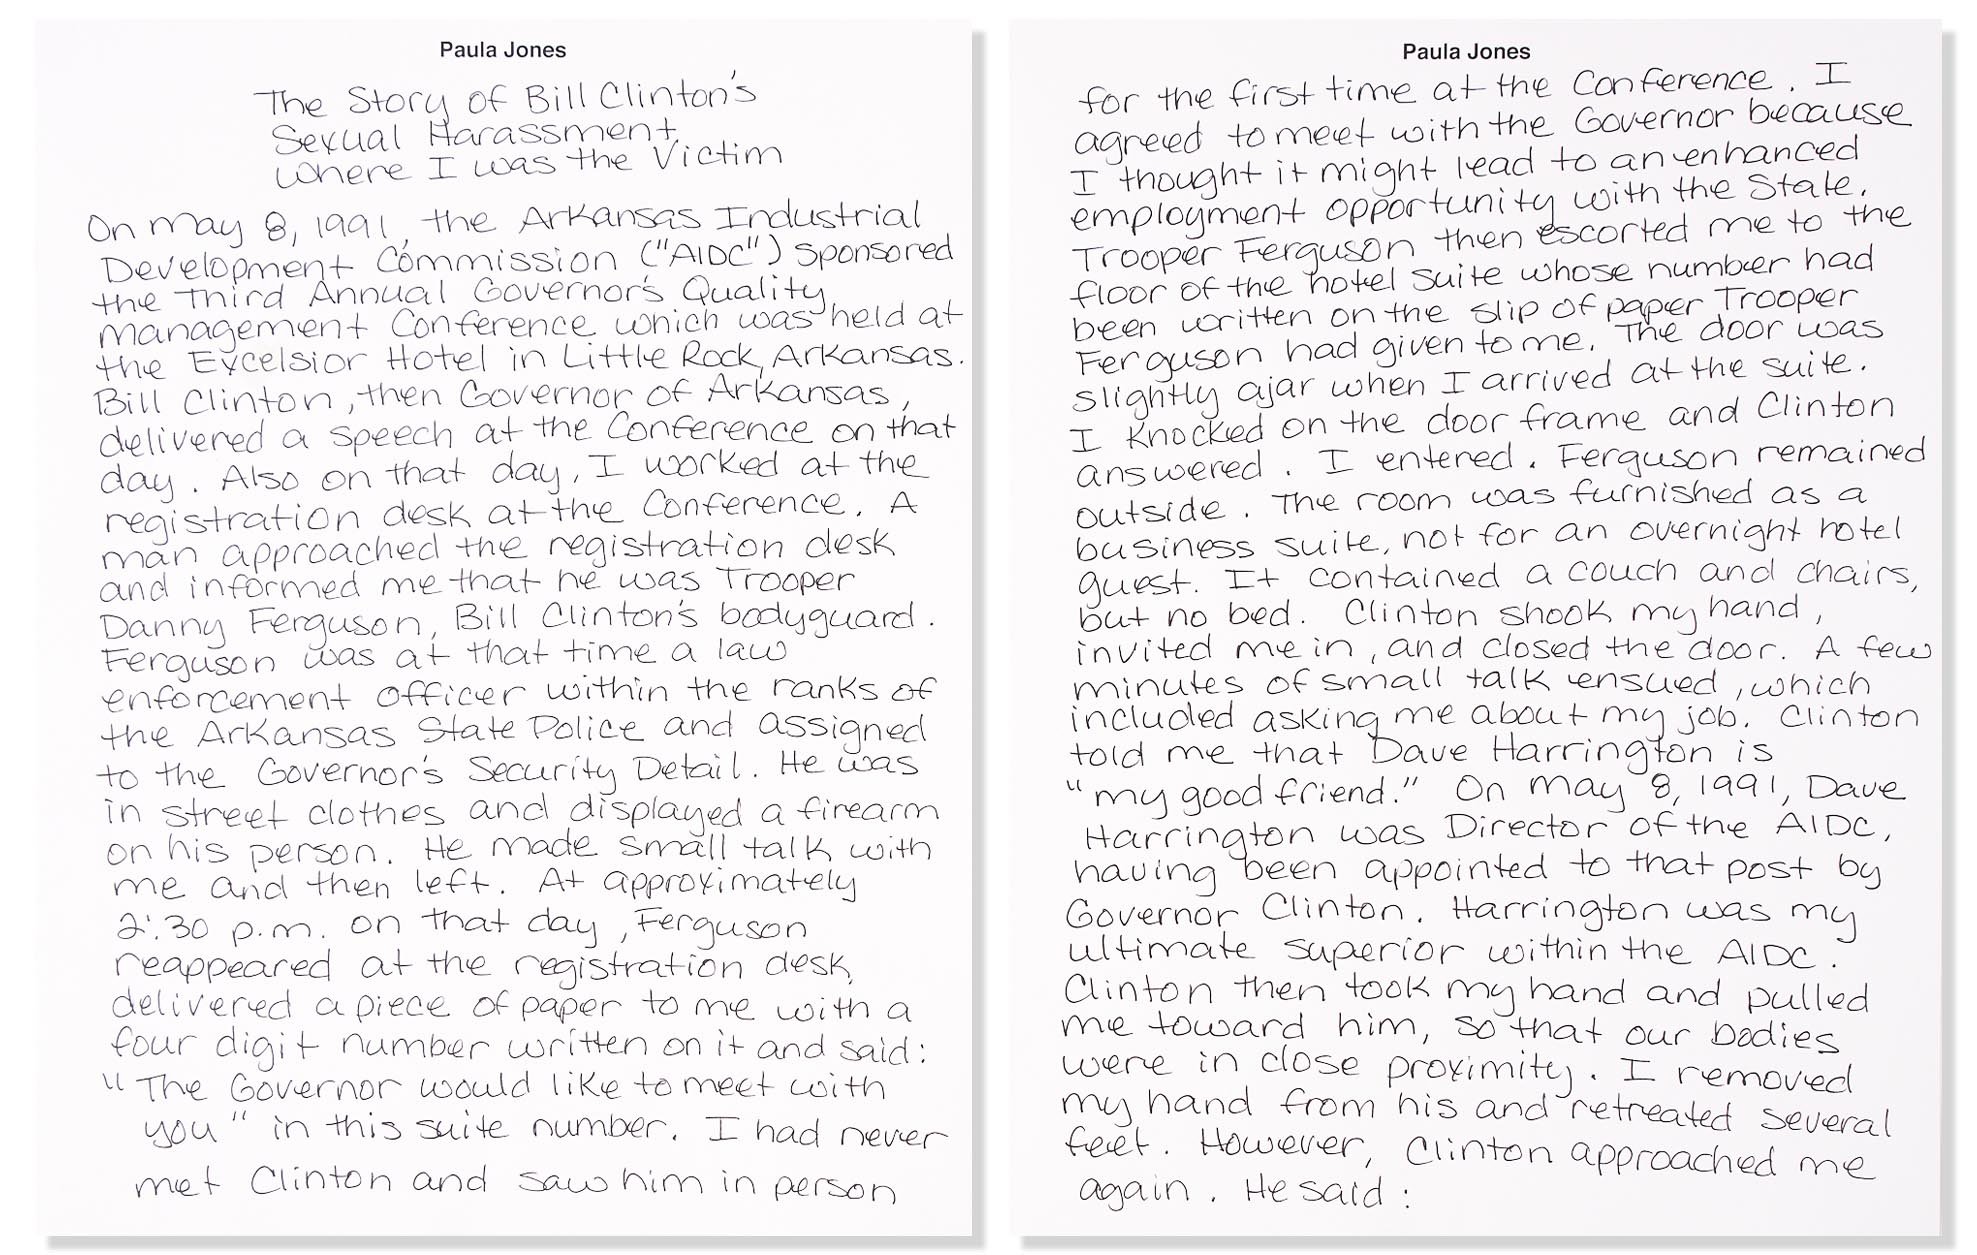 Paula Jones
The Story of Bill Clinton's
Sexual Harassment,
where I was the Victim
On May 8, 1991, the Arkansas Industrial
Development Commission ("AIDC") sponsored
the Third Annual Governor's Quality
management Conference which was held at
the Excelsior Hotel in Little Rock, Arkansas.
Bill Clinton, then Governor of Arkansas,
delivered a speech at the Conference on that
day. Also on that day, I worked at the
registration desk at the Conference. A
man approached the registration desk
and informed me that he was Trooper
Danny Ferguson, Bill Clinton's bodyguard.
Ferguson was at that time a law
enforcement officer within the ranks of
the Arkansas State Police and assigned
to the Governor's Security Detail. He was
in street clothes and displayed a firearm
on his person. He made small talk with
me and then left. At approximately
2:30 p.m. on that day, Ferguson
reappeared at the registration desk,
delivered a piece of paper to me with a
four digit number written on it and said:
"The Governor would like to meet with
you" in this suite number. I had never
met Clinton and saw him in person
Paula Jones
for the first time at the Conference. I
agreed to meet with the Governor because
I thought it might lead to an enhanced
employment opportunity with the State.
Trooper Ferguson then escorted me to the
floor of the hotel suite whose number had
been written on the slip of paper Trooper
Ferguson had given to me. The door was
slightly ajar when I arrived at the suite.
I knocked on the door frame and Clinton
answered. I entered. Ferguson remained
outside. The room was furnished as a
business suite, not for an overnight hotel
guest. It contained a couch and chairs,
but no bed. Clinton shook my hand,
invited me in, and closed the door. A few
minutes of small talk ensued, which
included asking me about my job. Clinton
told me that Dave Harrington is
"my good friend." On May 8, 1991, Dave
Harrington was Director of the AIDC,
having been appointed to that post by
Governor Clinton. Harrington was my
ultimate superior within the AIDC.
Clinton then took my hand and pulled
me toward him, so that our bodies
were in close proximity. I removed
my hand from his and retreated several
feet. However, Clinton approached me
again. He said: